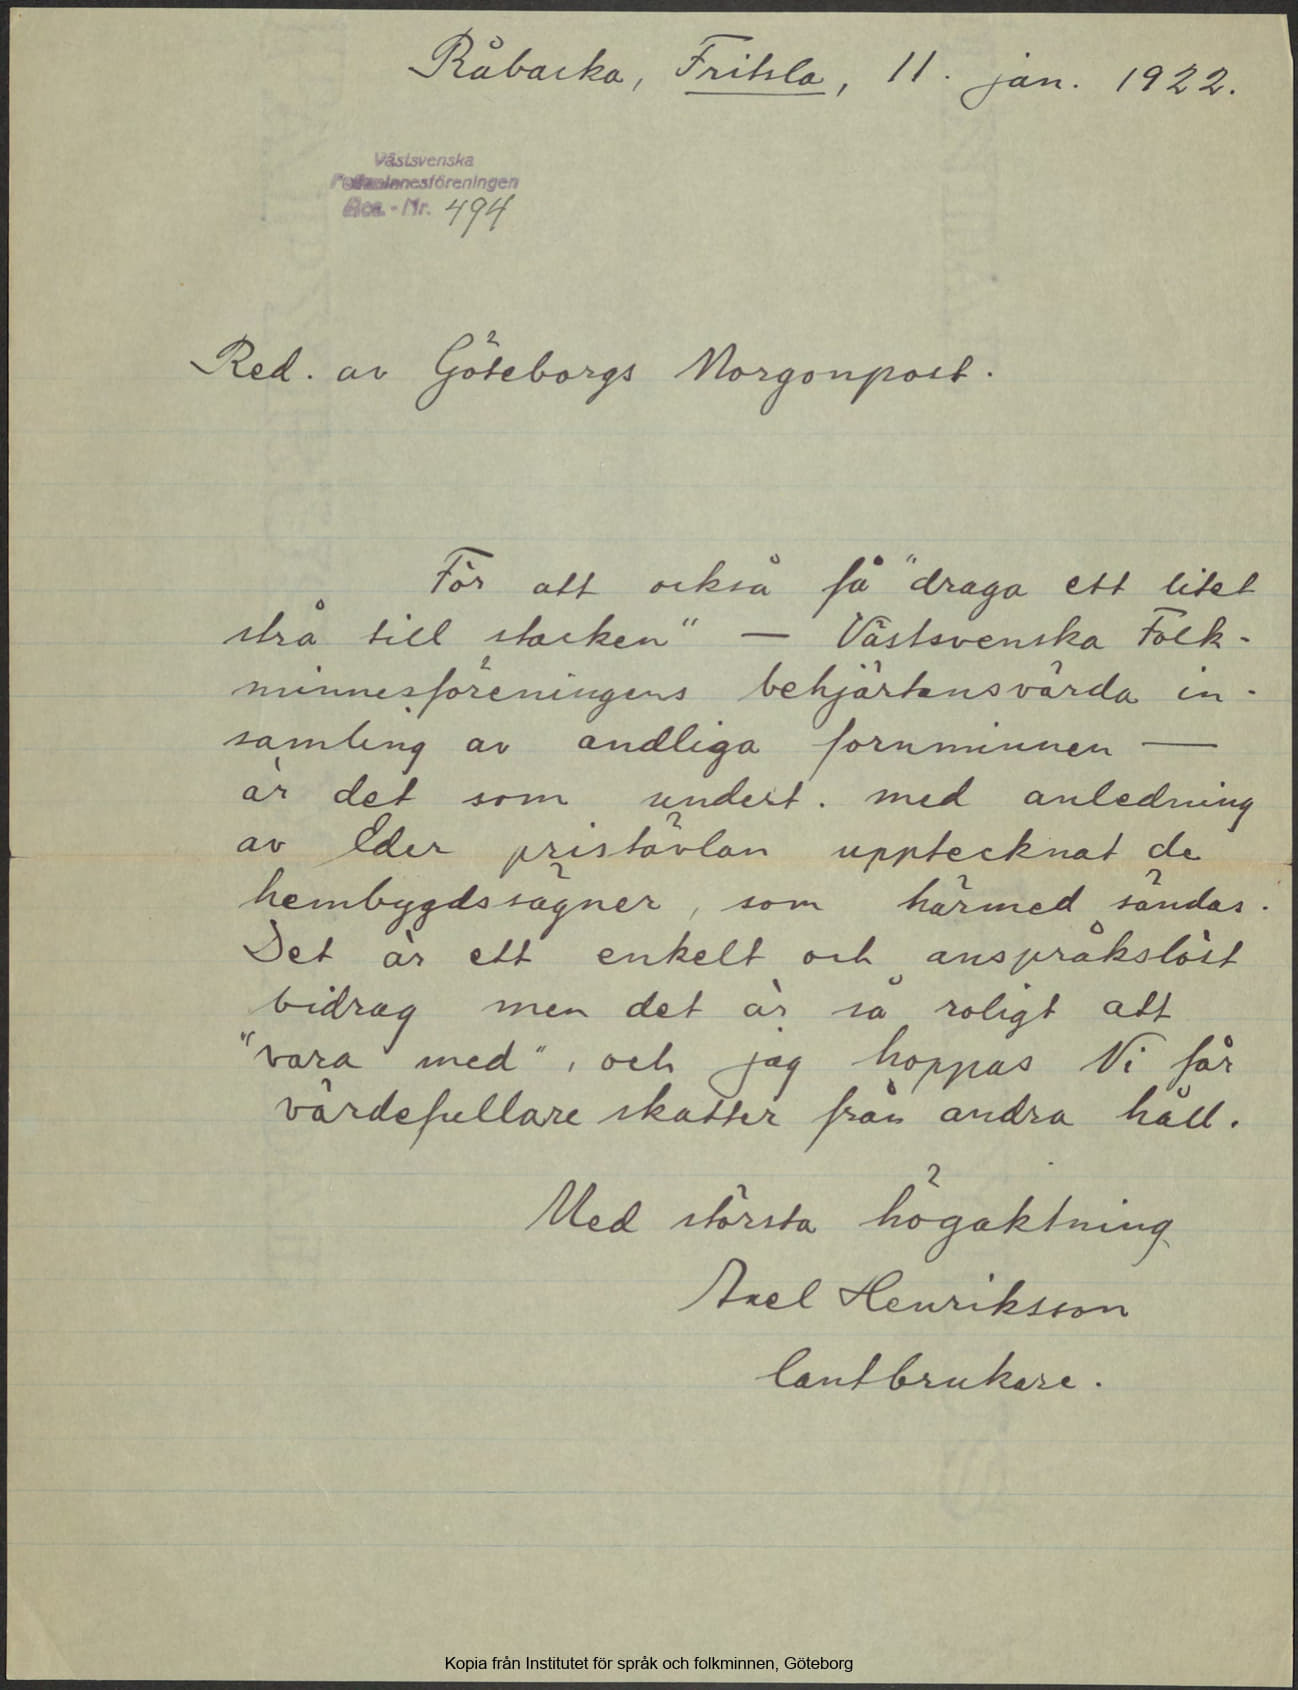 Råbacka, Fritsla, 11. jan. 1922.
Västsvenska
Folkminnesföreningen
Acc. - Nr. 494
Red. av Göteborgs Morgonpost.
För att också få "draga ett litet
strå till stacken" — Västsvenska Folk-
minnesföreningens behjärtansvärda in-
samling av andliga fornminnen —
är det som undert. med anledning
av Eder pristävlan upptecknat de
hembygdssägner, som härmed sändas.
Det är ett enkelt och anspråkslöst
bidrag men det är så roligt att
"vara med", och jag hoppas Ni får
värdefullare skatter från andra håll.
Med största högaktning
Axel Henriksson
lantbrukare.
Kopia från Institutet för språk och folkminnen, Göteborg